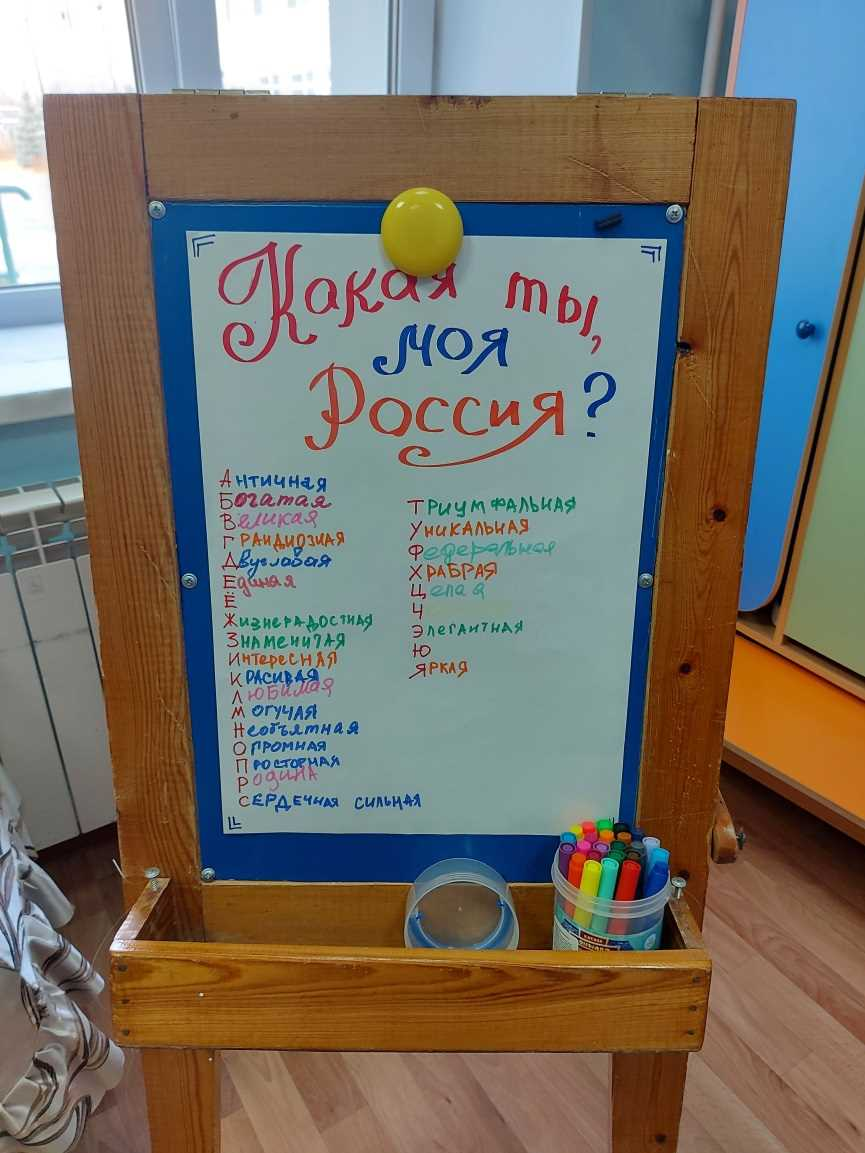 Какая ты,
моя
Россия?
Античная
Богатая
Великая
Грандиозная
Двуглавая
Единая
Ё
Жизнерадостная
Знаменитая
Интересная
Красивая
Любимая
Могучая
Необъятная
Огромная
Просторная
Родина
Сердечная сильная
Триумфальная
Уникальная
Федеральная
Храбрая
Ч
Элегантная
Ю
Яркая